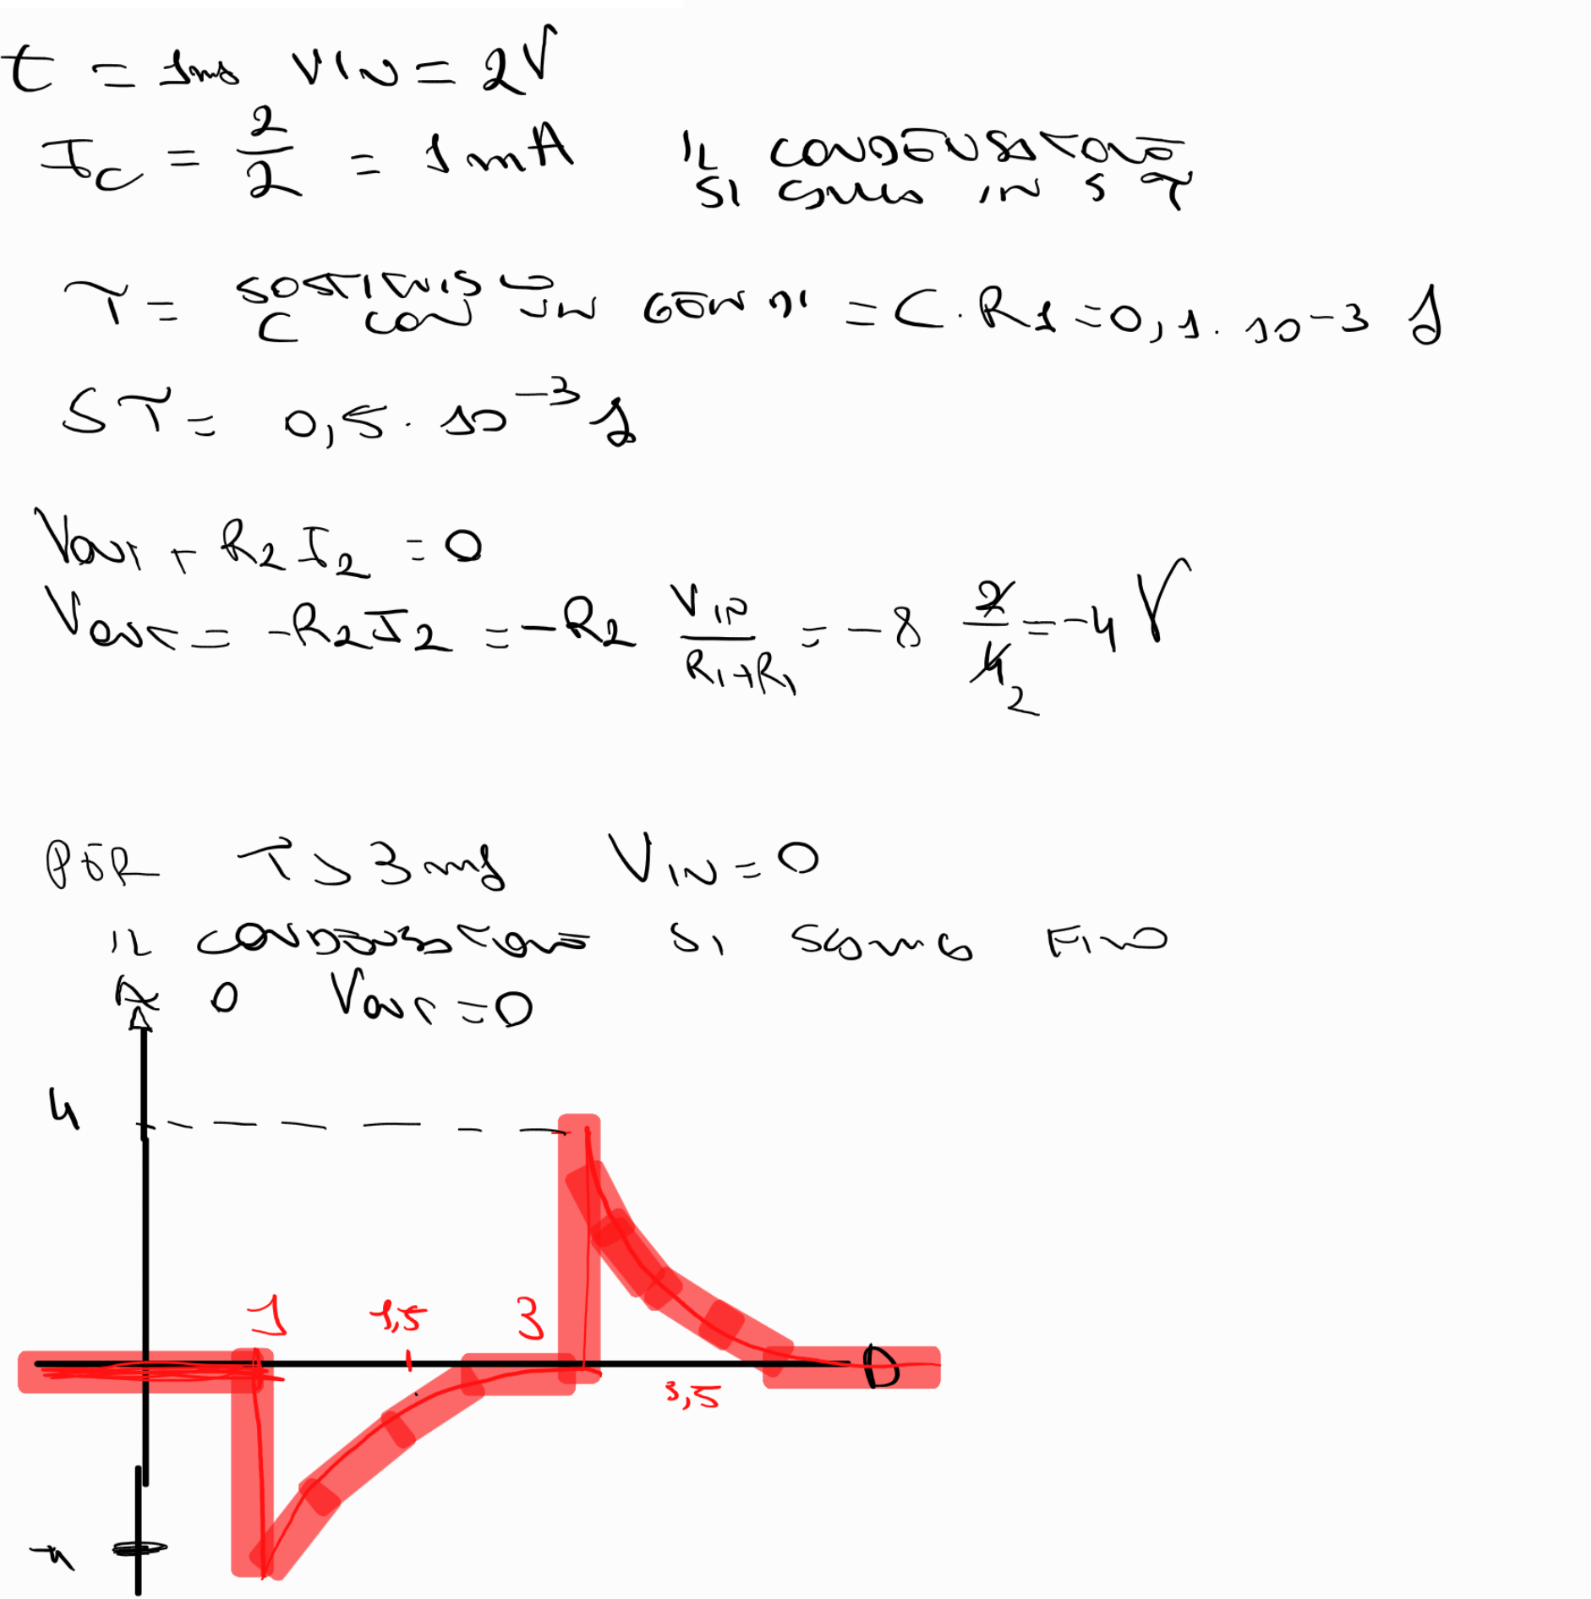 t = 1ms VIN = 2V
IC = 2/2 = 1mA IL CONDENSATORE
SI CARICA IN 5 τ
τ = SOSTITUISCO
C CON UN GEN DI = C · R1 = 0,1 · 10^-3 s
5τ = 0,5 · 10^-3 s
VOUT + R2 I2 = 0
VOUT = -R2 I2 = -R2 VIN/(R1+R1) = -8 2/4 2 = -4 V
PER T > 3 ms VIN = 0
IL CONDENSATORE SI SCARICA FINO
A 0 VOUT = 0
4
1 1,5 3
3,5
-4